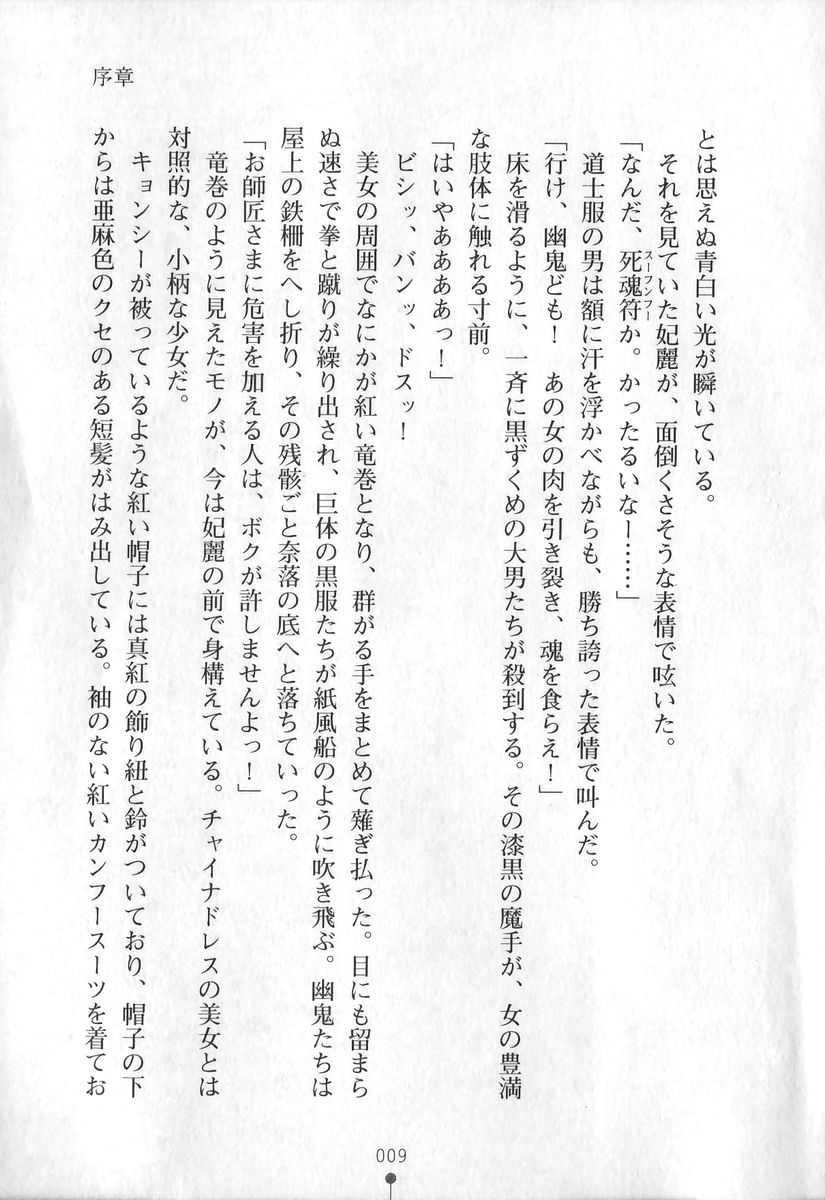 序章
とは思えぬ青白い光が瞬いている。
それを見ていた妃麗が、面倒くさそうな表情で呟いた。
「なんだ、死魂符か。かったるいなー……」
スーフンフー
道士服の男は額に汗を浮かべながらも、勝ち誇った表情で叫んだ。
「行け、幽鬼ども！　あの女の肉を引き裂き、魂を食らえ！」
床を滑るように、一斉に黒ずくめの大男たちが殺到する。その漆黒の魔手が、女の豊満
な肢体に触れる寸前。
「はいやああああっ！」
ビシッ、バンッ、ドスッ！
美女の周囲でなにかが紅い竜巻となり、群がる手をまとめて薙ぎ払った。目にも留まら
ぬ速さで拳と蹴りが繰り出され、巨体の黒服たちが紙風船のように吹き飛ぶ。幽鬼たちは
屋上の鉄柵をへし折り、その残骸ごと奈落の底へと落ちていった。
「お師匠さまに危害を加える人は、ボクが許しませんよっ！」
竜巻のように見えたモノが、今は妃麗の前で身構えている。チャイナドレスの美女とは
対照的な、小柄な少女だ。
キョンシーが被っているような紅い帽子には真紅の飾り紐と鈴がついており、帽子の下
からは亜麻色のクセのある短髪がはみ出している。袖のない紅いカンフースーツを着てお
009